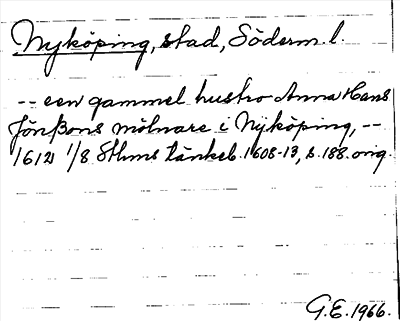 Nyköping, stad, Söderm. l.
-- een gammel hustro Anna Hans
Jönßons mölnare i Nyköping, --
1612 1/8 Sthms tänkeb. 1608-13, s. 188. orig.
G.E. 1966.